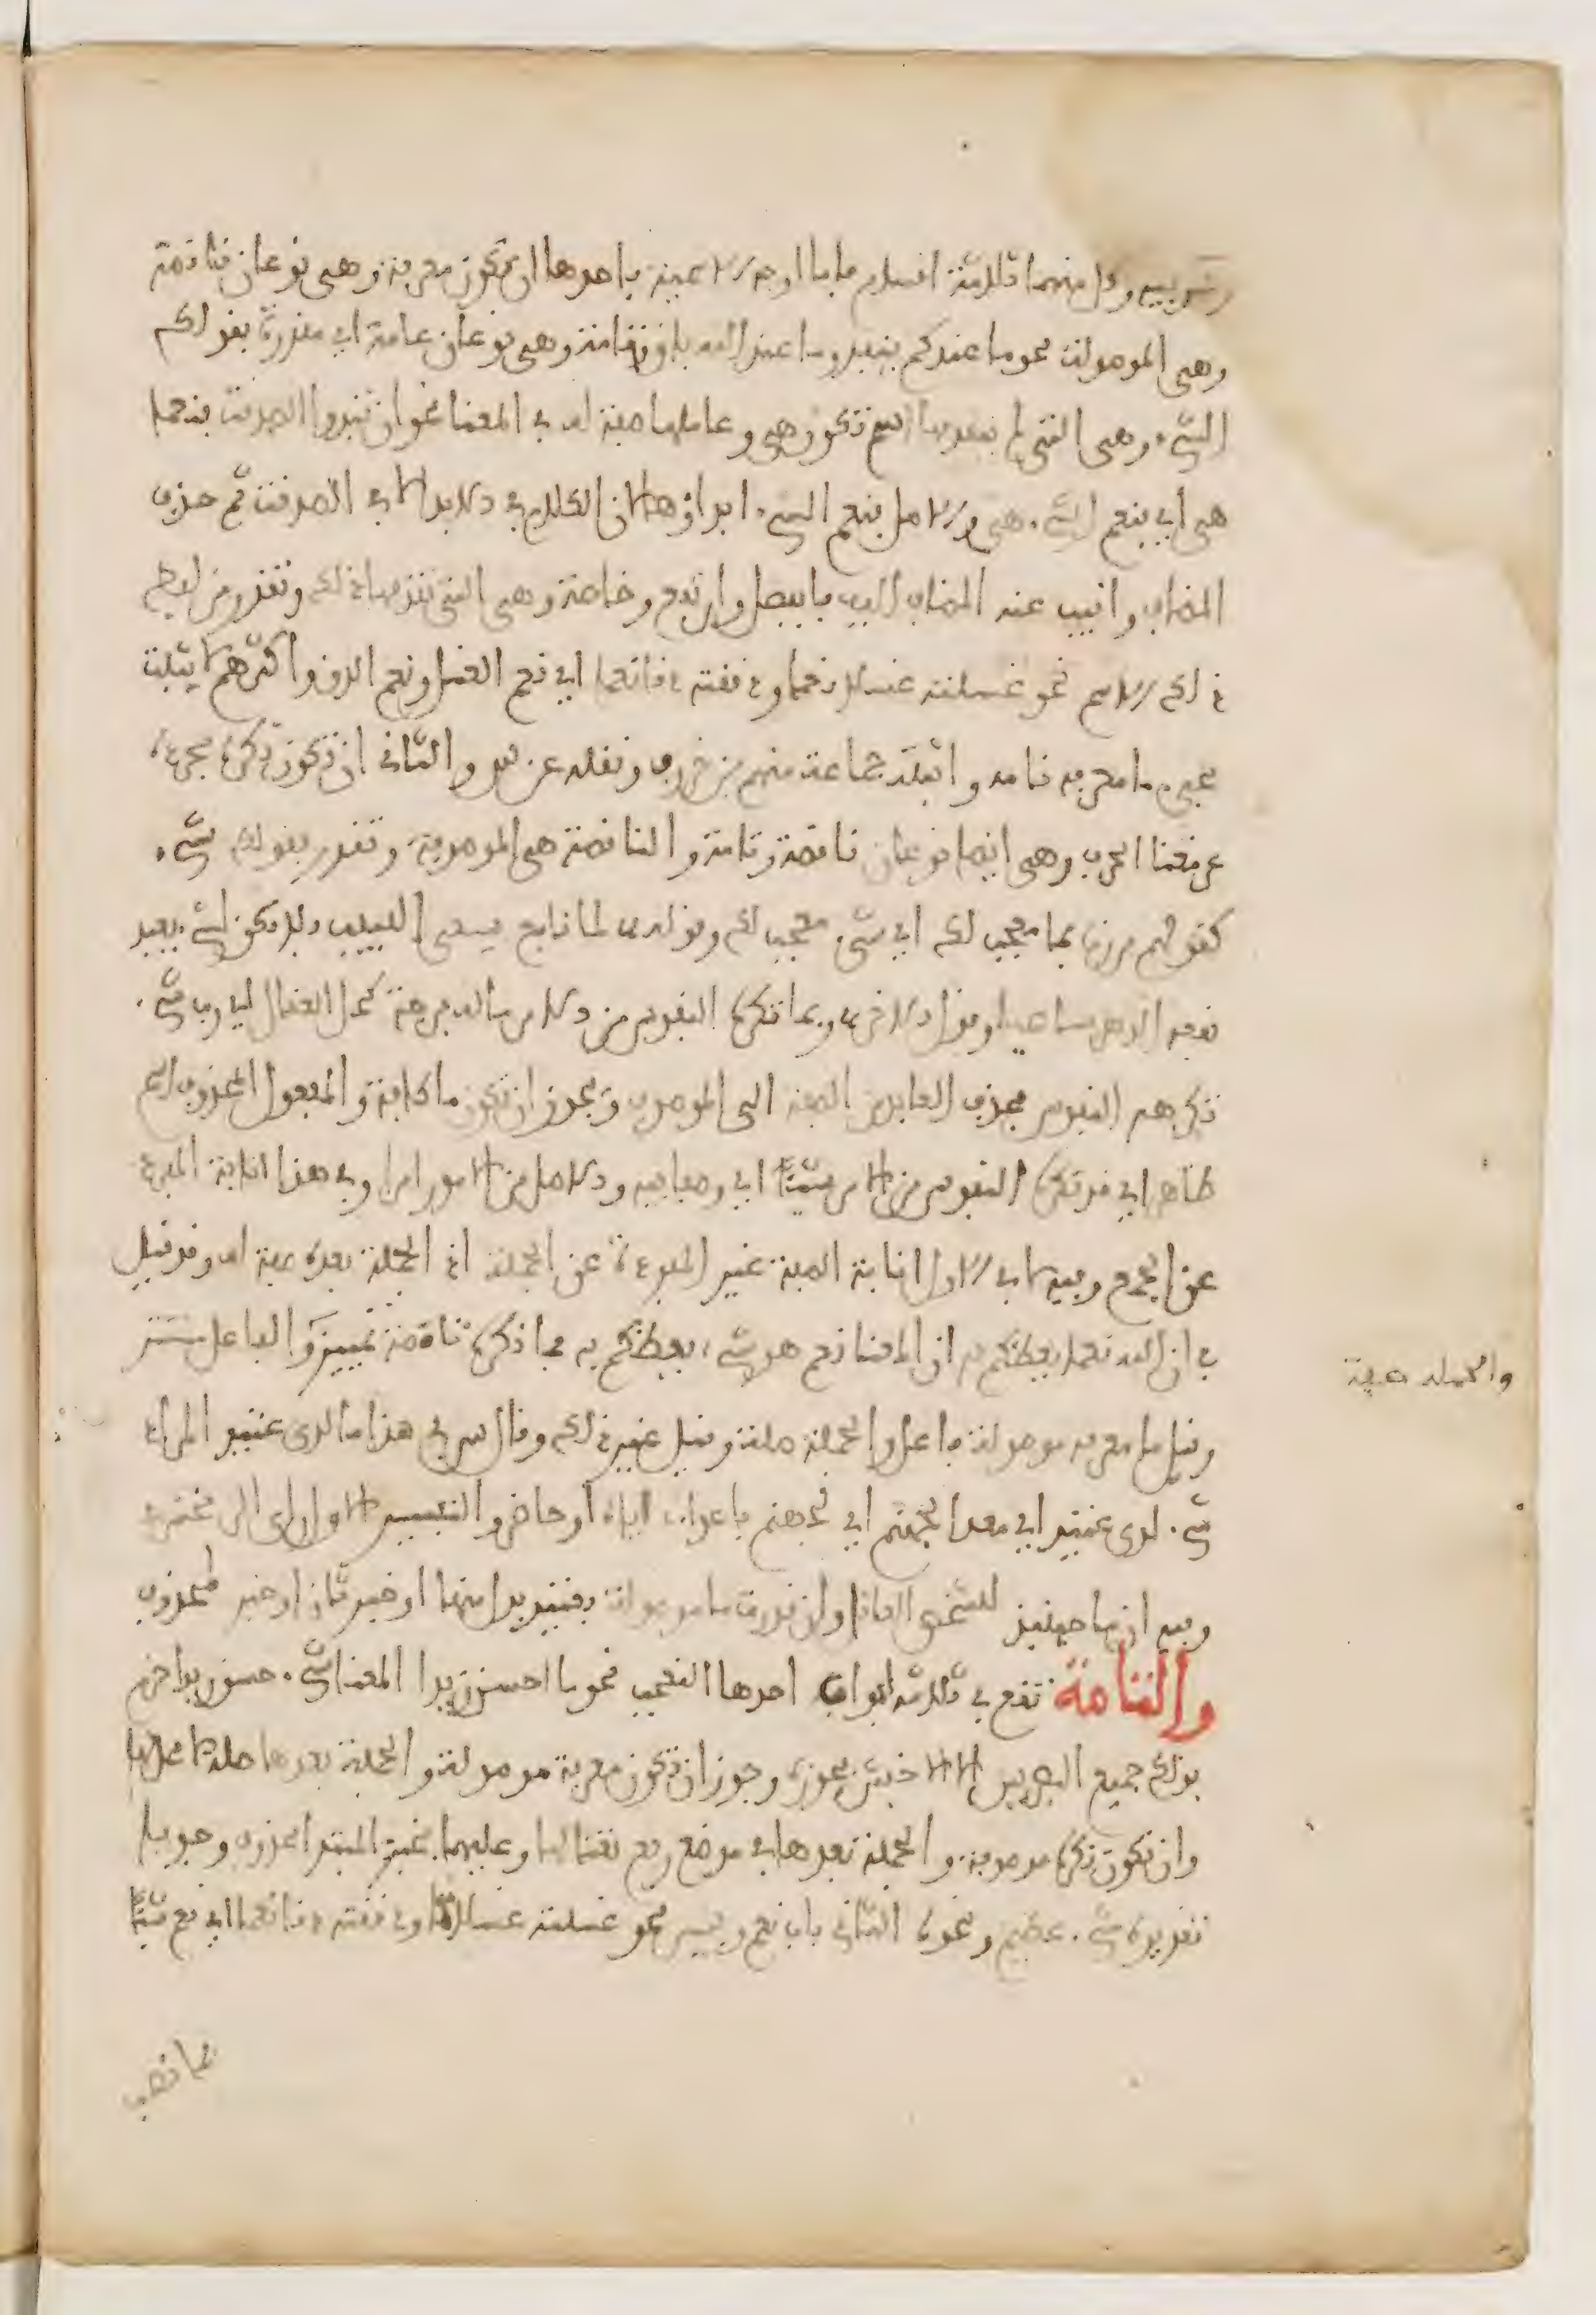 وحرفية وكل منهما ثلاثة اقسام فاما اوجه الاسمية فاحدها ان تكون معرفة وهي نوعان ناقصة
وهي الموصولة نحو ما عندكم ينفد وما عند الله باق وتامة وهي نوعان عامة اي مقدرة بقولك
الشيء وهي التي لم يتقدمها اسم تكون هي وعاملها صفة له في المعنا نحو ان تبدوا الصدقت فنعما
هي اي فنعم الشيء هي والاصل فنعم الشيء ابداؤها لان الكلام في الابداء لا في الصدقت ثم حذف
المضاف وانيب عنه المضاف اليه فانفصل وارتفع وخاصة وهي التي تقدمها ذلك وتقدر من لفظ
ذلك الاسم نحو غسلته غسلا نعما ودققته دقا نعما اي نعم الغسل ونعم الدق واكثرهم لا يثبت
مجيء ما معرفة تامة واثبته جماعة منهم بن خروف ونقله عن س والثاني ان تكون نكرة مجردة
عن معنا الحرف وهي ايضا نوعان ناقصة وتامة والناقصة هي الموصوفة وتقدر بقولك شيء
كقولهم مررت بما معجب لك اي بشيء معجب لك وقوله لما نافع يسعى اللبيب فلا تكن لشيء بعيد
نفعه الدهر ساعيا وقول الاخر ربما تكره النفوس من الامر له فرجة كحل العقال اي رب شيء
تكرهه النفوس فحذف العايد من الصفة الى الموصوف ويجوز ان تكون ما كافة والمفعول المحذوف اسم
ظاهر اي قد تكره النفوس من الامر شيئا اي وصفا فيه والاصل من الامور امرا وفي هذا انابة المفرد
عن الجمع وفيه وفي الاول انابة الصفة غير المفردة عن الجملة اذ الجملة بعده صفة له وقد قيل
في ان الله نعما يعظكم به ان المعنا نعم هو شيء يعظكم به فما نكرة تامة تمييز والفاعل مستتر
والجملة صفة
وقيل ما معرفة موصولة فاعل والجملة صلة وقيل غير ذلك وقال س في هذا ما لدي عتيد المراد
شيء لدي عتيد اي معد لجهنم اي لجهنم باغواي اياه او حاضر والتفسير الاول راي الزمخشري
وفيه ان ما حينئذ للشخص العاقل وان قدرت ما موصولة فعتيد بدل منها او خبر ثان او خبر لمحذوف
والتامة تقع في ثلاثة ابواب احدها التعجب نحو ما احسن زيدا المعنا شيء حسن زيدا جزم
بذلك جميع البصريين الا الاخفش فجوزه وجوز ان تكون معرفة موصولة والجملة بعدها صلة لا محل لها
وان تكون نكرة موصوفة والجملة بعدها في موضع رفع نعتا لها وعليهما فخبر المبتدا محذوف وجوبا
تقديره شيء عظيم ونحوه الثاني باب نعم وبيس نحو غسلته غسلا نعما ودققته دقا نعما اي نعم شيئا